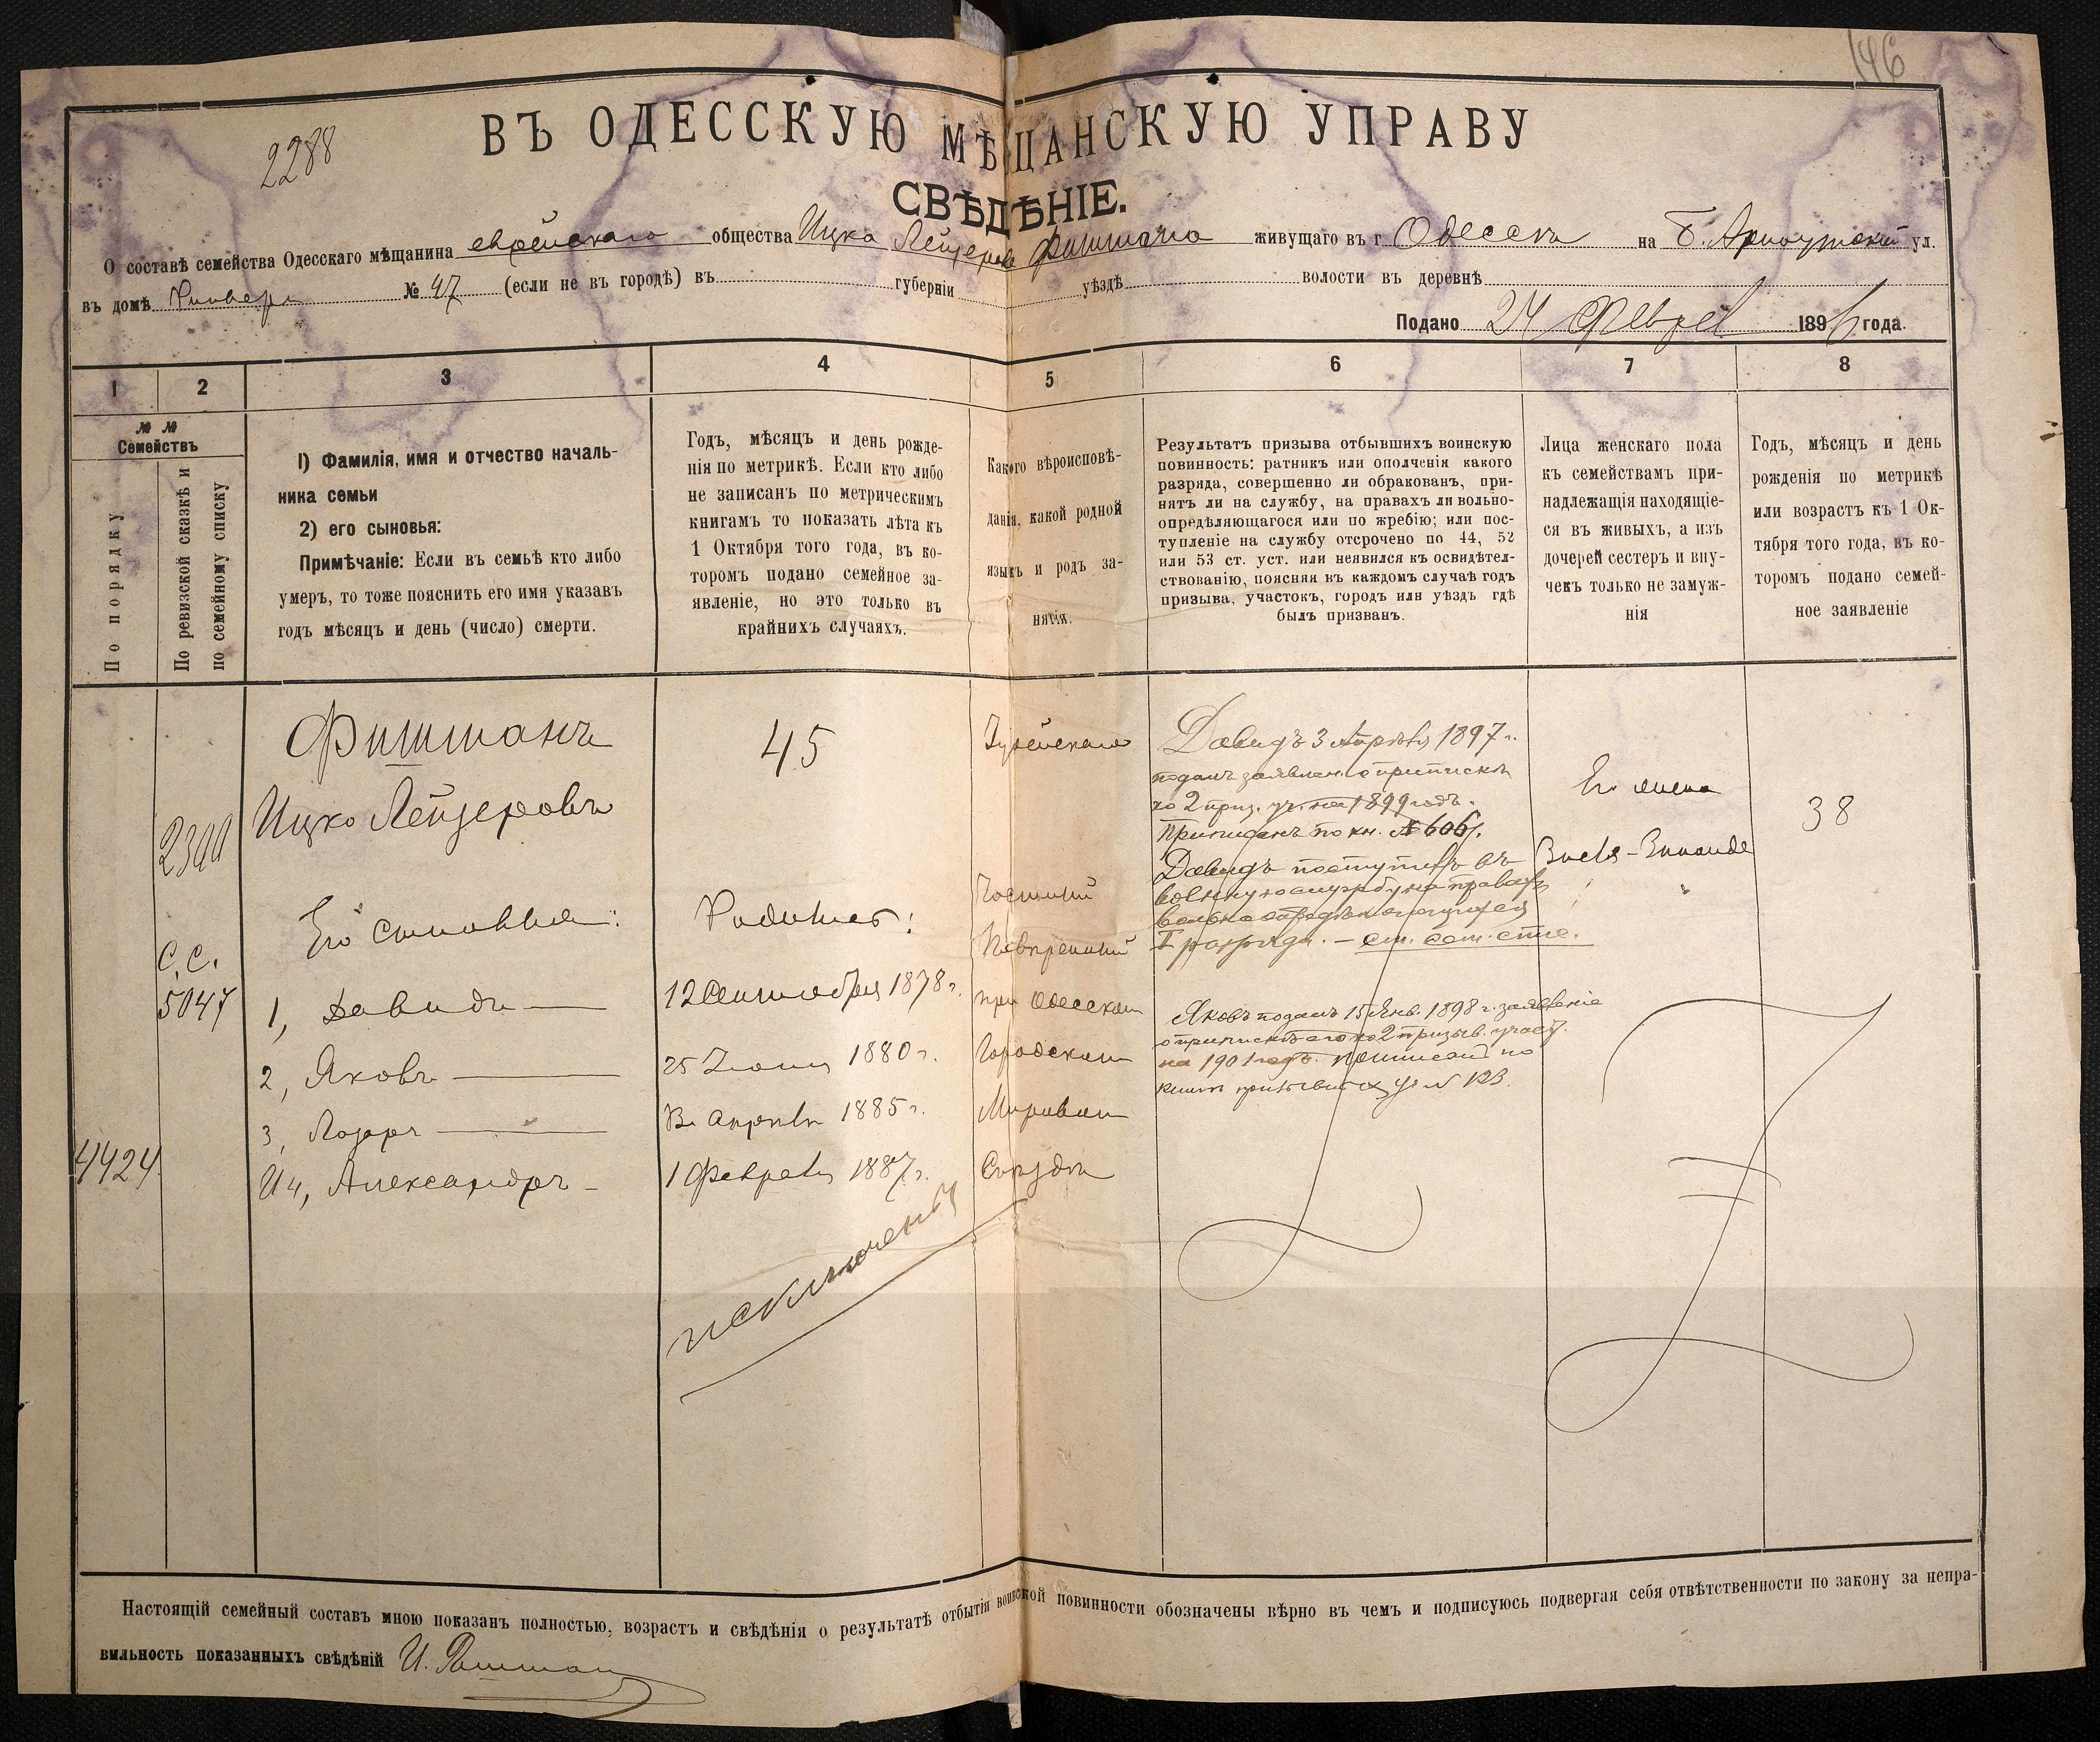 146
2288
ВЪ ОДЕССКУЮ МѢЩАНСКУЮ УПРАВУ
СВѢДѢНІЕ.
О составѣ семейства Одесскаго мѣщанина еврейскаго общества Ицка Лейзерова Фишмана живущаго въ г. Одессѣ на Б. Арнаутской ул.
въ домѣ № 47 (если не въ городѣ) въ губерніи уѣздѣ волости въ деревнѣ
Подано 24 Феврал 1896 года.
1 2 3 4 5 6 7 8
№ №
Семействъ
По порядку
По ревизской сказкѣ и
по семейному списку
1) Фамилія, имя и отчество началь-
ника семьи
2) его сыновья:
Примѣчаніе: Если въ семьѣ кто либо
умеръ, то тоже пояснить его имя указавъ
годъ мѣсяцъ и день (число) смерти.
Годъ, мѣсяцъ и день рожде-
нія по метрикѣ. Если кто либо
не записанъ по метрическимъ
книгамъ то показать лѣта къ
1 Октября того года, въ ко-
торомъ подано семейное за-
явленіе, но это только въ
крайнихъ случаяхъ.
Какого вѣроисповѣ-
данія, какой родной
языкъ и родъ за-
нятія.
Результатъ призыва отбывшихъ воинскую
повинность: ратникъ или ополченія какого
разряда, совершенно ли обракованъ, при-
нятъ ли на службу, на правахъ ли вольно-
опредѣляющагося или по жребію; или пос-
тупленіе на службу отсрочено по 44, 52
или 53 ст. уст. или неявился къ освидѣтел-
ствованію, поясняя въ каждомъ случаѣ годъ
призыва, участокъ, городъ или уѣздъ гдѣ
былъ призванъ.
Лица женскаго пола
къ семействамъ при-
надлежащія находящіе-
ся въ живыхъ, а изъ
дочерей сестеръ и вну-
чекъ только не замуж-
нія
Годъ, мѣсяцъ и день
рожденія по метрикѣ
или возрастъ къ 1 Ок-
тября того года, въ ко-
торомъ подано семей-
ное заявленіе
2300
С.С.
5047
4424
Фишманъ
Ицко Лейзеровъ
Его сыновья:
1, Давидъ
2, Яковъ
3, Лазарь
И 4, Александръ
45
Родились:
12 Сентября 1878 г.
25 Іюня 1880 г.
В. Апрѣля 1885 г.
1 Февраля 1887 г.
исключенъ
Іудейскаго
Частный
Повѣренный
при Одесскомъ
Городскомъ
Мировомъ
Съѣздѣ
Давидъ 3 Апрѣля 1897 г.
подалъ заявлен. о припискѣ
ко 2 приз. уч. на 1899 годъ.
Приписанъ по кн. № 606.
Давидъ поступилъ въ
военную службу на правахъ
вольноопредѣляющагося
I разряда. —
Яковъ подалъ 15 Янв. 1898 г. заявленіе
о припискѣ его ко 2 призыв. участ.
на 1901 годъ. приписанъ по
книгѣ призывн. уч. №
Его жена
38
Настоящій семейный составъ мною показанъ полностью, возрастъ и свѣдѣнія о результатѣ отбытія воинской повинности обозначены вѣрно въ чемъ и подписуюсь подвергая себя отвѣтственности по закону за непра-
вильность показанныхъ свѣдѣній И. Фишман